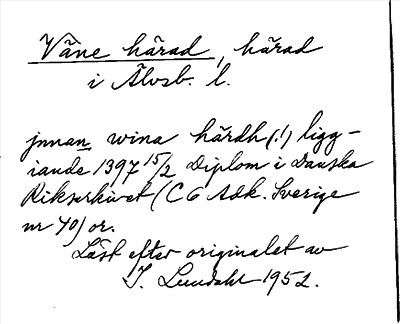 Väne härad, härad
i Älvsb. l.
jnnan wina härdh (!) ligg-
iande 1397 15/2 Diplom i Danska
Rikserkivet (C 6 Adk. Sverige
nr 40) or.
Läst efter originalet av
I. Lundahl 1952.